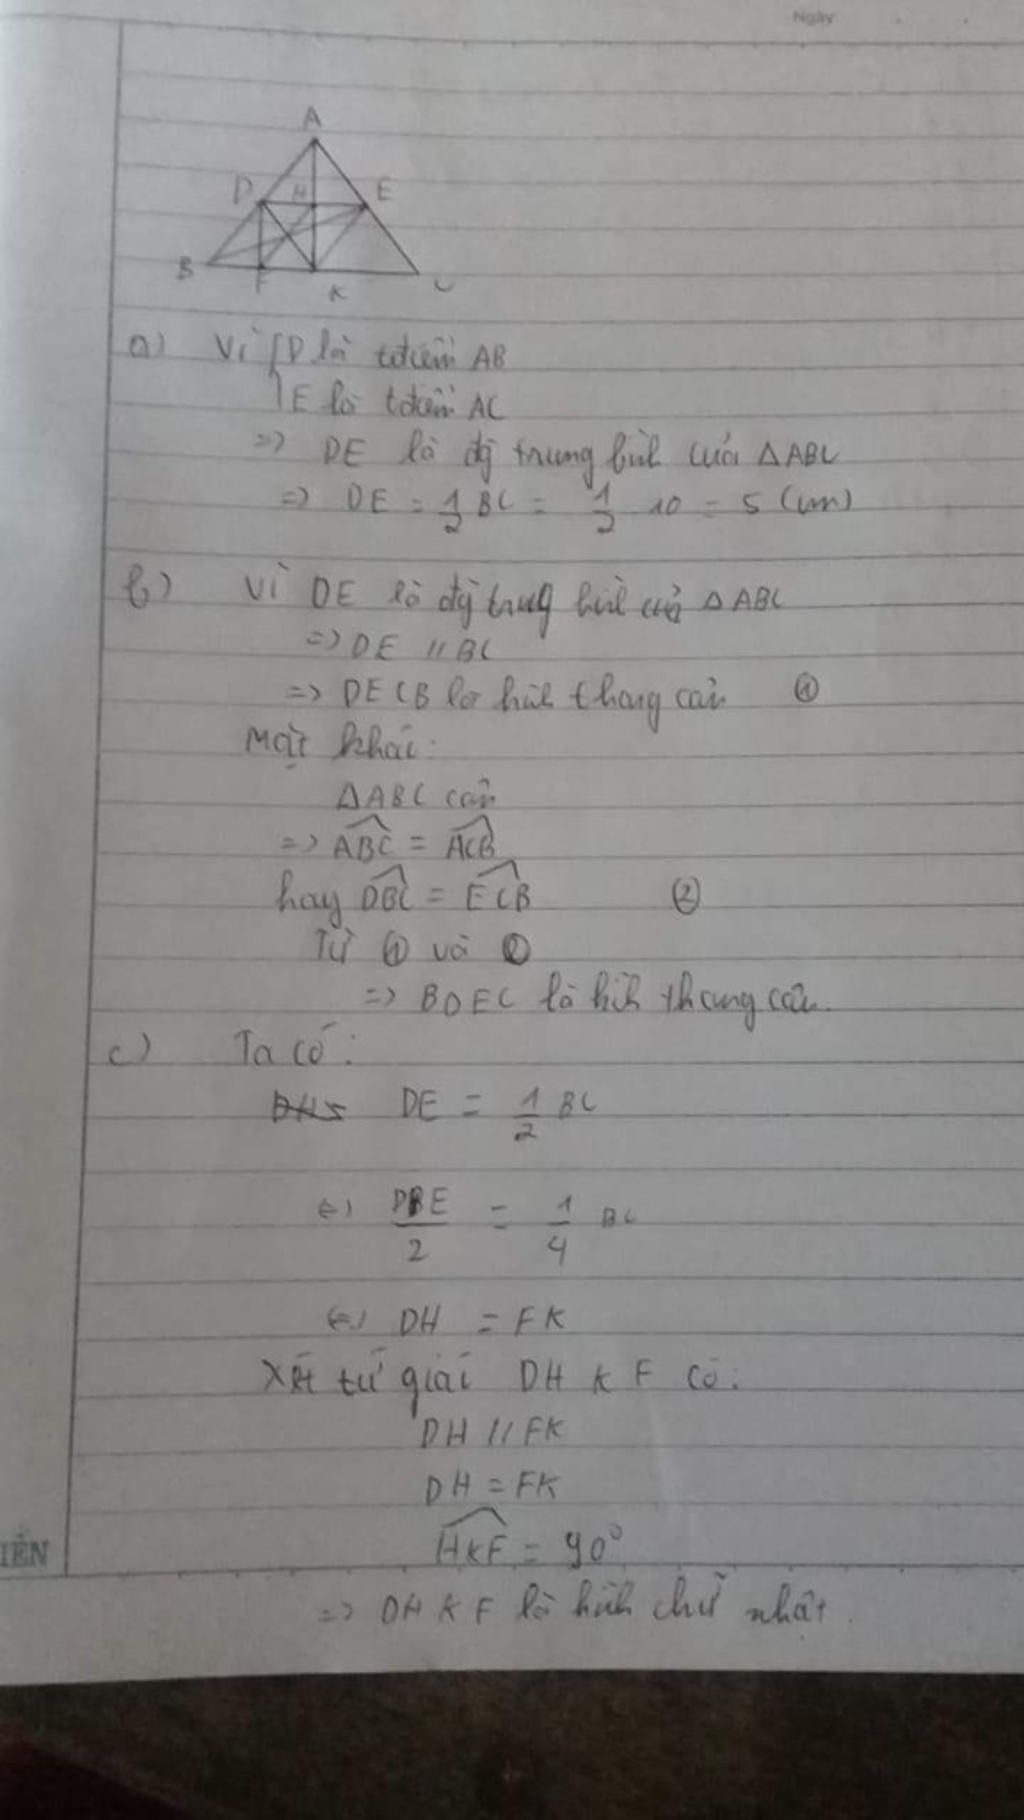 Ngày
A
D H E
B F K C
a) Vì { D là tđiểm AB
E là tđiểm AC
=> DE là đg trung bình của △ABC
=> DE = 1/2 BC = 1/2 10 = 5 (cm)
b) Vì DE là đg trung bình của △ABC
=> DE // BC
=> DECB là hình thang cân ①
Mặt khác:
△ABC cân
=> ABC = ACB
hay DBC = ECB ②
Từ ① và ②
=> BDEC là hình thang cân.
c) Ta có:
DE = 1/2 BC
<=> DE/2 = 1/4 BC
<=> DH = FK
Xét tứ giác DHKF có:
DH // FK
DH = FK
HKF = 90°
IẾN
=> DHKF là hình chữ nhật.